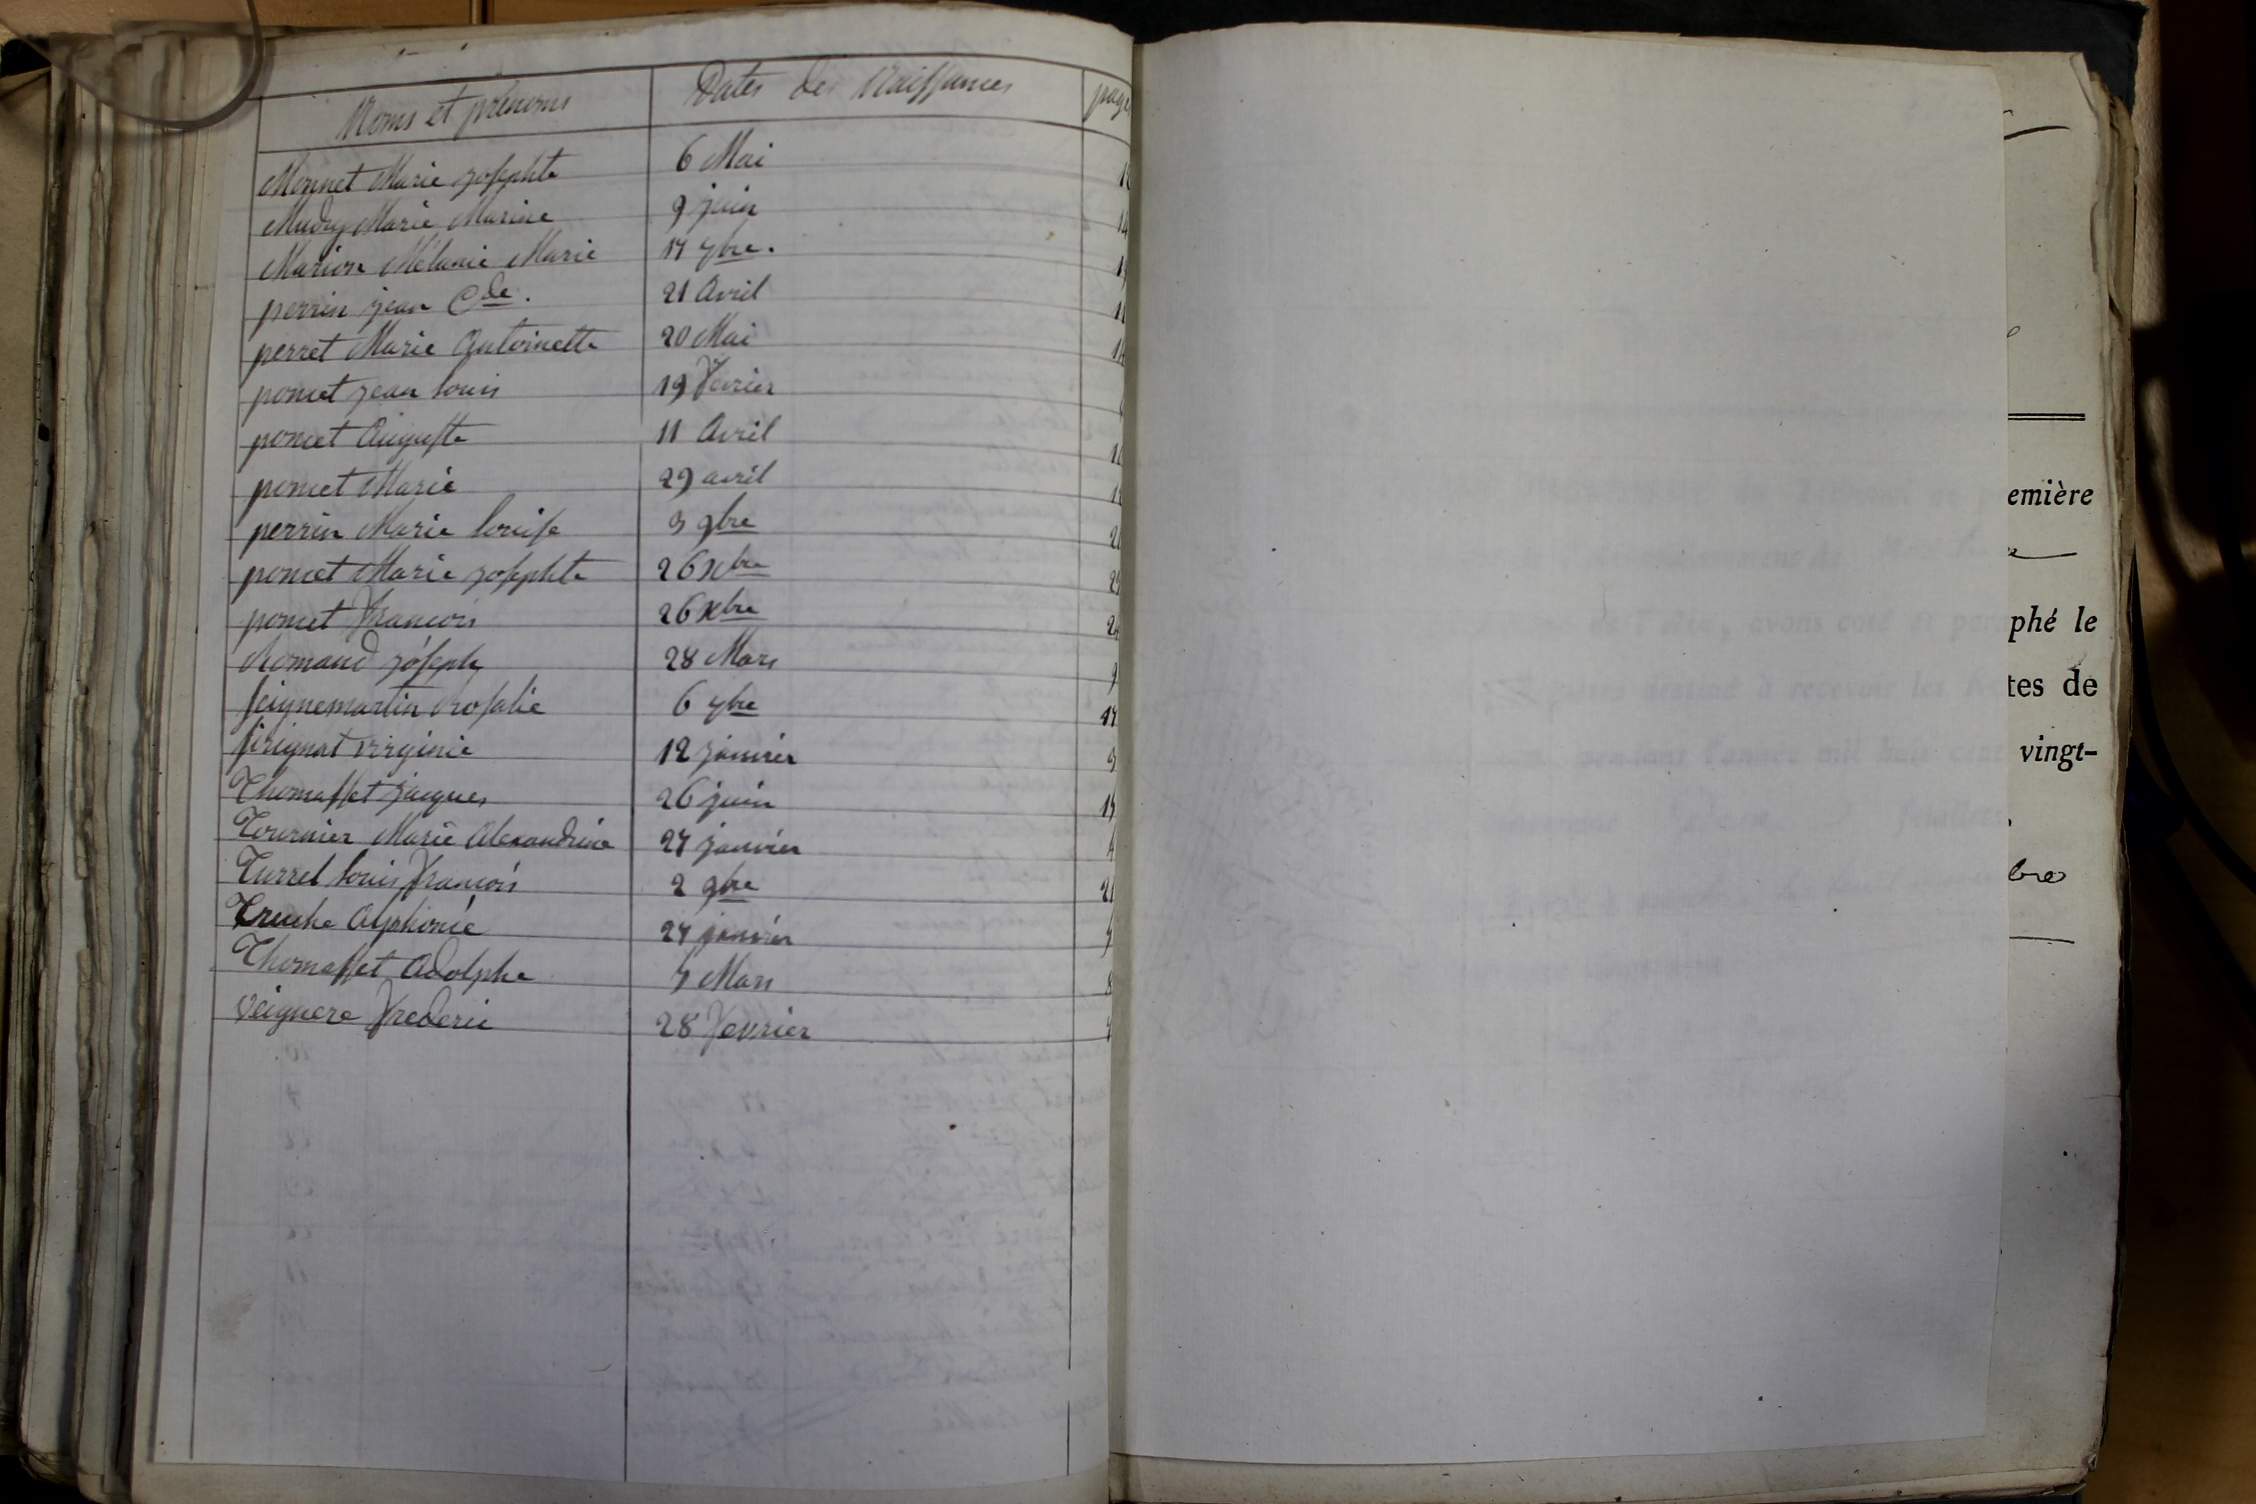 Noms et prénoms Dates des Naissances pages
Monnet Marie Josephte 6 Mai
Mudry Marie Marine 9 juin 14
Marion Mélanie Marie 17 7bre.
perrin jean Cde. 21 Avril
perret Marie Antoinette 20 Mai
poncet jean louis 19 Fevrier
poncet Auguste 11 Avril
poncet Marie 29 avril
perrin Marie louise 3 9bre
poncet Marie josephte 26 xbre
poncet François 26 xbre
Romand joseph 28 Mars 9
seignemartin rosalie 6 7bre 17
sirignat virginie 12 janvier 3
Thomasset jacques 26 juin 15
Tournier Marie Alexandrine 27 janvier 4
Turrel louis François 2 9bre 21
Truche Alphonse 27 janvier
Thomasset Adolphe 7 Mars 8
Veignere Frederic 28 Fevrier
emière
phé le
tes de
vingt-
bre